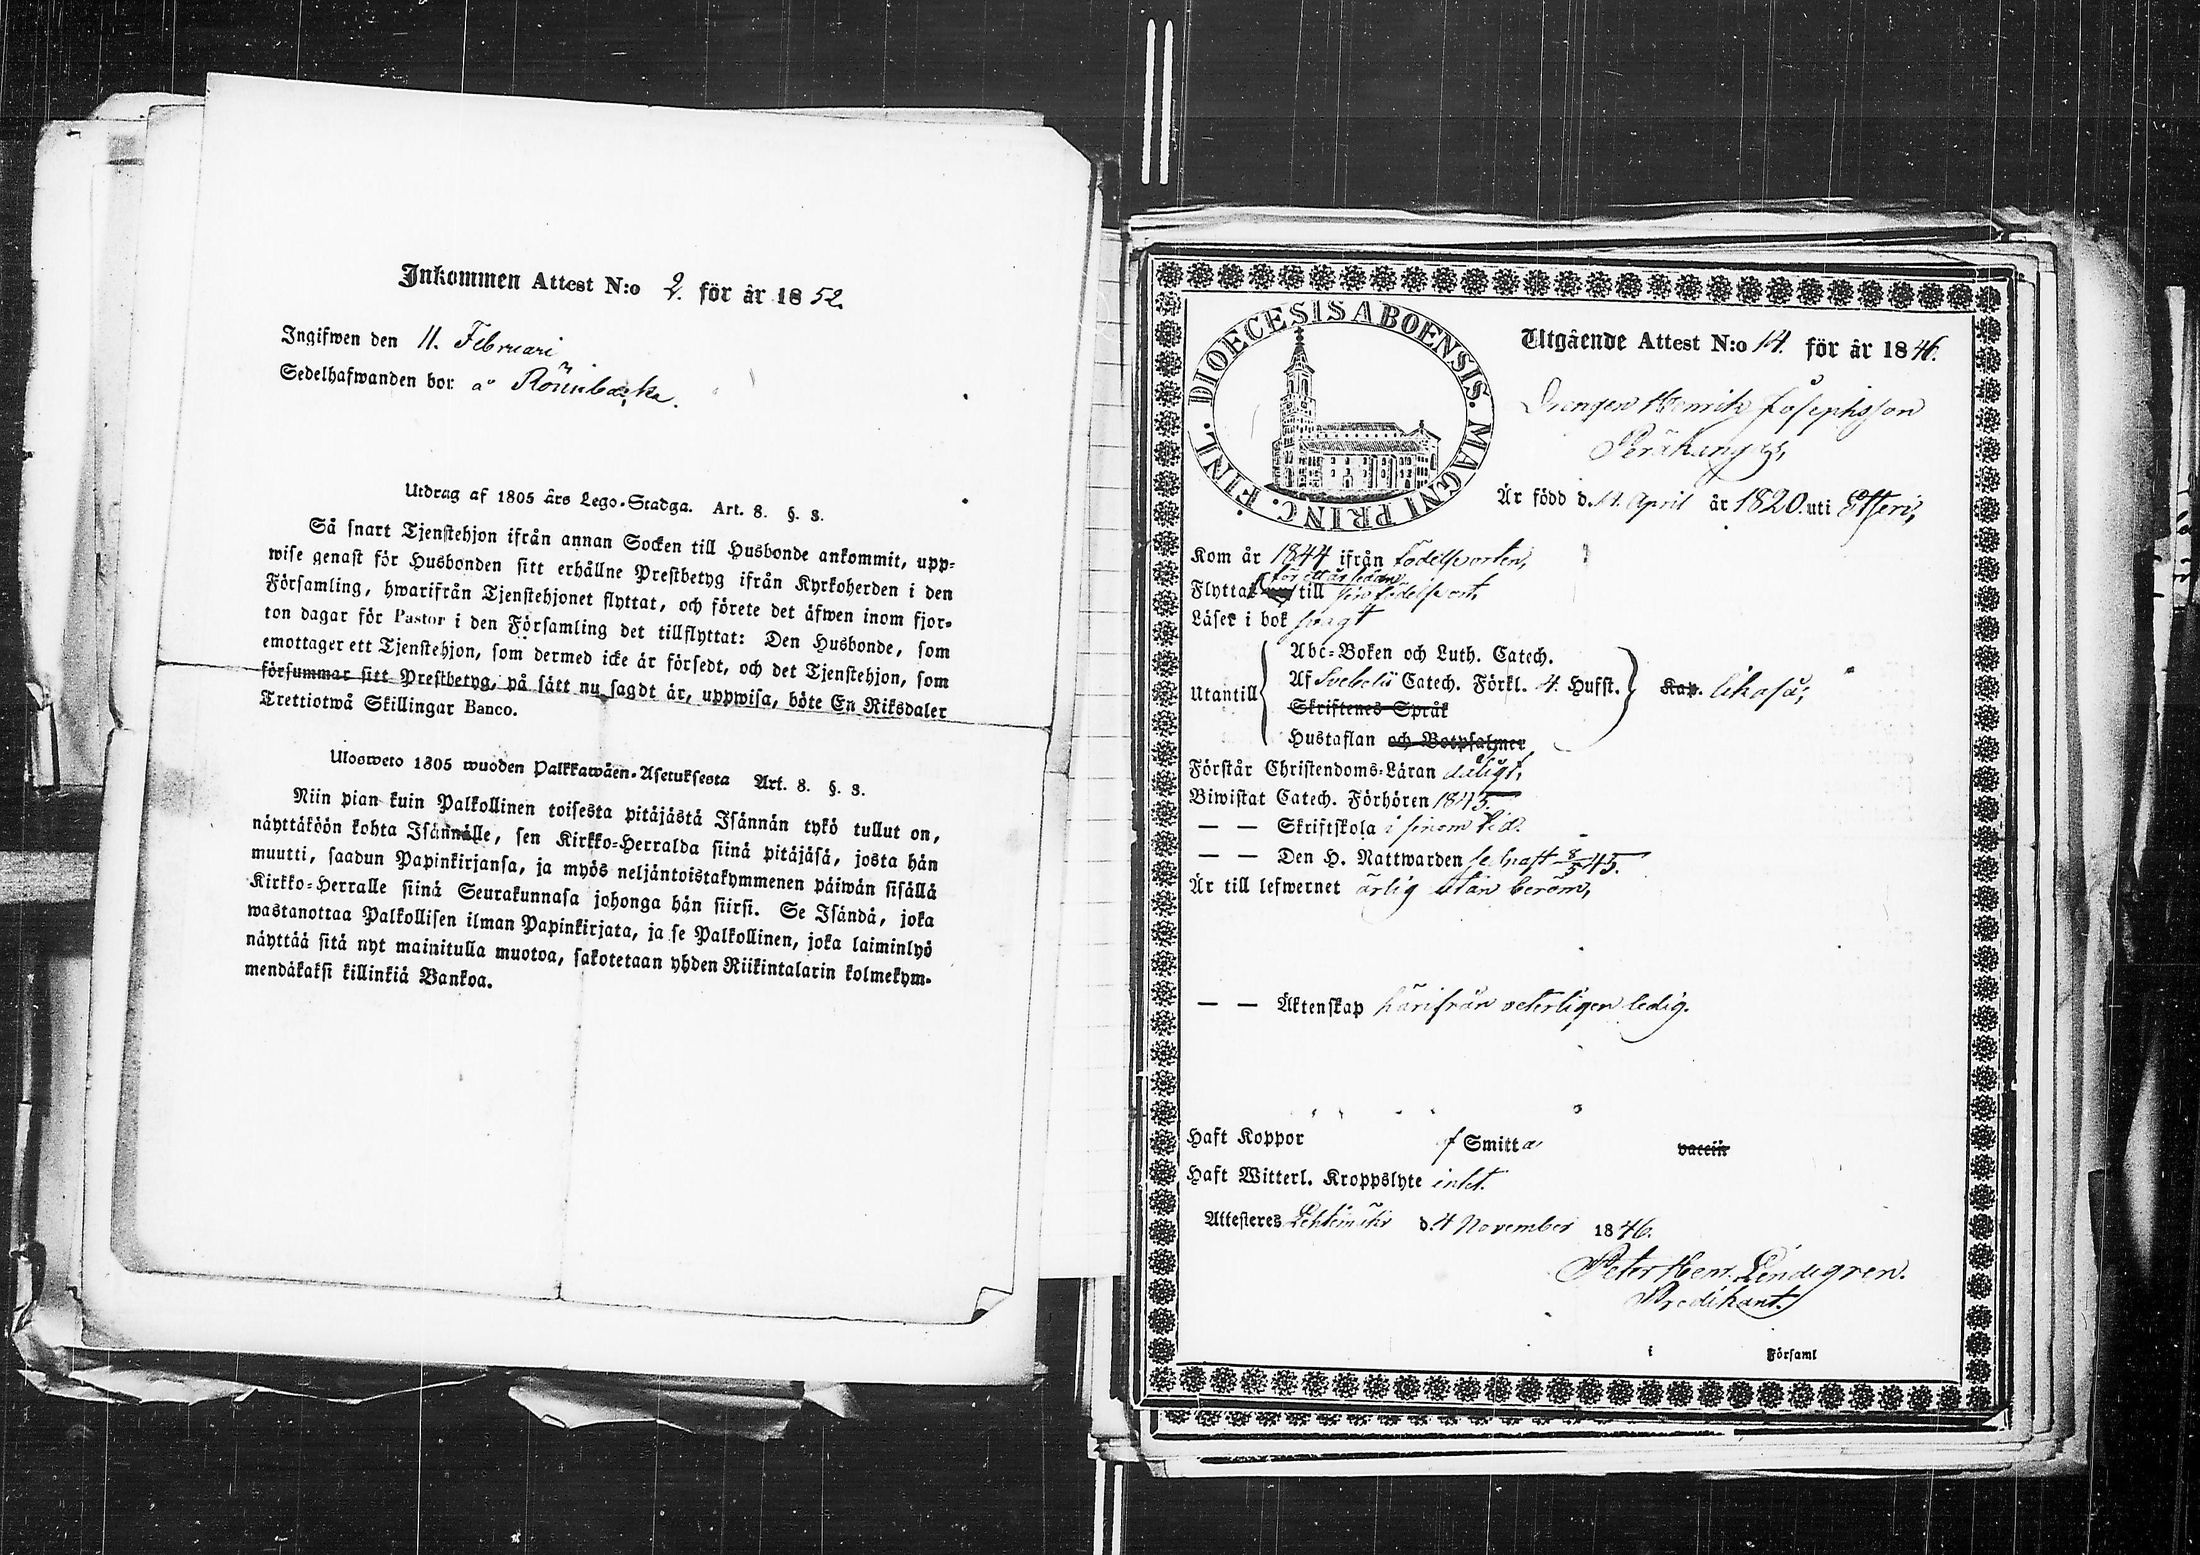 Inkommen Attest N:o 2. för år 1852.
Ingifwen den 11. Februari
Sedelhafwanden bor å Rönnbacka.
Utdrag af 1805 års Lego-Stadga. Art. 8. §. 3.
Så snart Tjenstehjon ifrån annan Socken till Husbonde ankommit, upp-
wise genast för Husbonden sitt erhållne Prestbetyg ifrån Kyrkoherden i den
Församling, hwarifrån Tjenstehjonet flyttat, och förete det äfwen inom fjor-
ton dagar för Pastor i den Församling det tillflyttat: Den Husbonde, som
emottager ett Tjenstehjon, som dermed icke är försedt, och det Tjenstehjon, som
försummar sitt Prestbetyg, på sätt nu sagdt är, uppwisa, böte En Riksdaler
Trettiotwå Skillingar Banco.
Ulosweto 1805 wuoden Palkkawäen-Asetuksesta Art. 8. §. 3.
Niin pian kuin Palkollinen toisesta pitäjästä Isännän tykö tullut on,
näyttäköön kohta Isännälle, sen Kirkko-Herralda siinä pitäjäsä, josta hän
muutti, saadun Papinkirjansa, ja myös neljäntoistakymmenen päiwän sisällä
Kirkko-Herralle siinä Seurakunnasa johonga hän siirsi. Se Isändä, joka
wastanottaa Palkollisen ilman Papinkirjata, ja se Palkollinen, joka laiminlyö
näyttää sitä nyt mainitulla muotoa, sakotetaan yhden Riikintalarin kolmekym-
mendäkaksi killinkiä Bankoa.
DIOECESIS ABOENSIS. MAGNI PRINC. FINL.
Utgående Attest N:o 14. för år 1846.
Drengen Henrik Josephsson
Peräkangas,
Är född d. 14. April år 1820. uti Etseri,
Kom år 1844 ifrån födelseorten,
för ett år sedan
Flyttat till sin födelseort,
Läser i bok svagt
Abc-Boken och Luth. Catech.
Utantill Af Svebelii Catech. Förkl. 4. Hufst. Kap. likaså,
Skriftenes Språk
Hustaflan och Botpsalmer
Förstår Christendoms-Läran dåligt,
Biwistat Catech. Förhören 1845.
— — Skriftskola i sinom tid.
— — Den H. Nattwarden se. haft 8/5 45.
Är till lefwernet ärlig utan beröm,
— — Äktenskap härifrån veterligen ledig.
Haft Koppor Smitta vaccin
Haft Witterl. Kroppslyte intet.
Attesteres Lehtimäki d. 4 November 1846.
Peter Henr. Lindegren.
Predikant.
i Församl